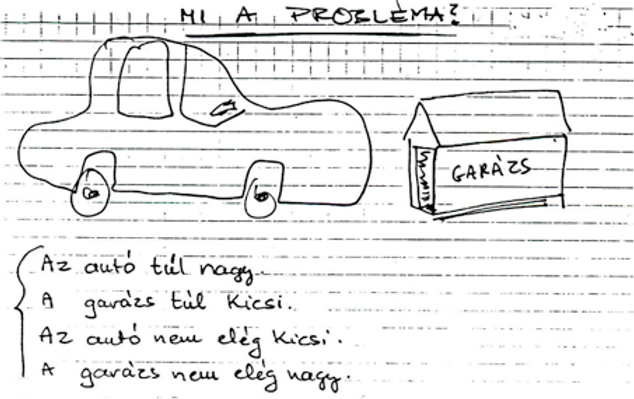 MI A PROBLÉMA?
GARÁZS
Az autó túl nagy.
A garázs túl kicsi.
Az autó nem elég kicsi.
A garázs nem elég nagy.